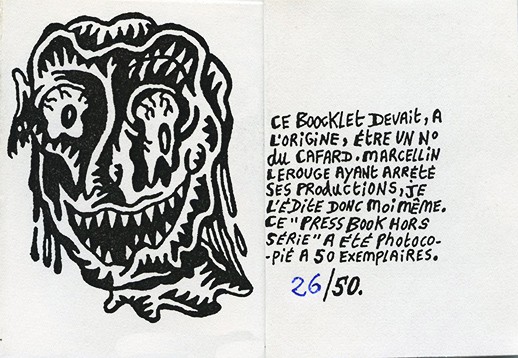 CE BOOCKLET DEVAIT, A
L'ORIGINE, ÊTRE UN N°
DU CAFARD. MARCELLIN
LEROUGE AYANT ARRÊTÉ
SES PRODUCTIONS, JE
L'ÉDITE DONC MOI MÊME.
CE "PRESS BOOK HORS
SÉRIE" A ÉTÉ PHOTOCO-
-PIÉ A 50 EXEMPLAIRES.
26/50.